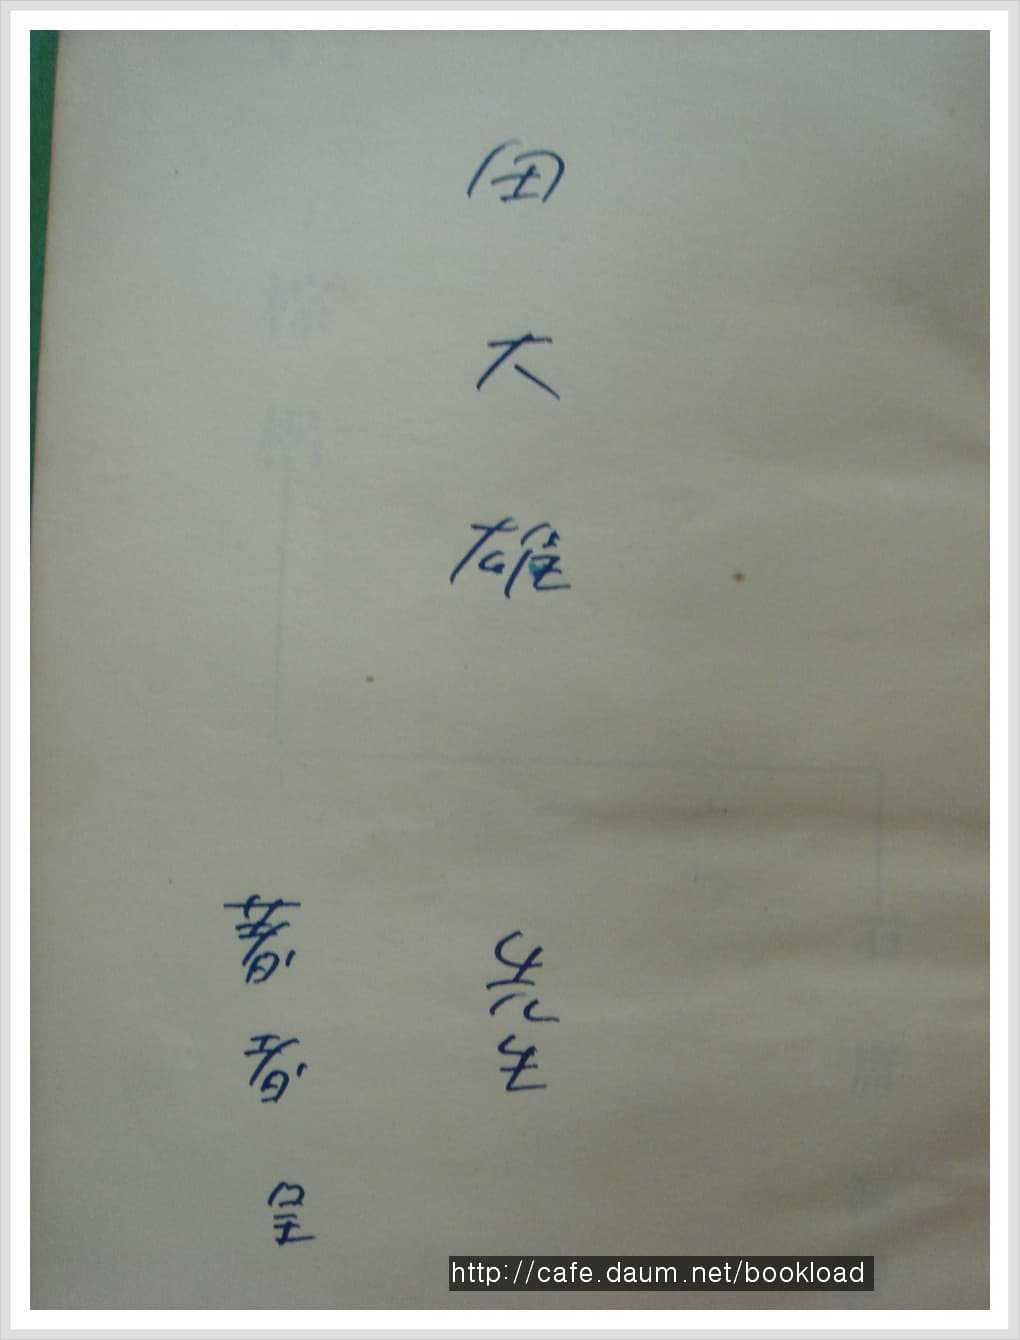 田大雄 先生
著者 呈
http://cafe.daum.net/bookload